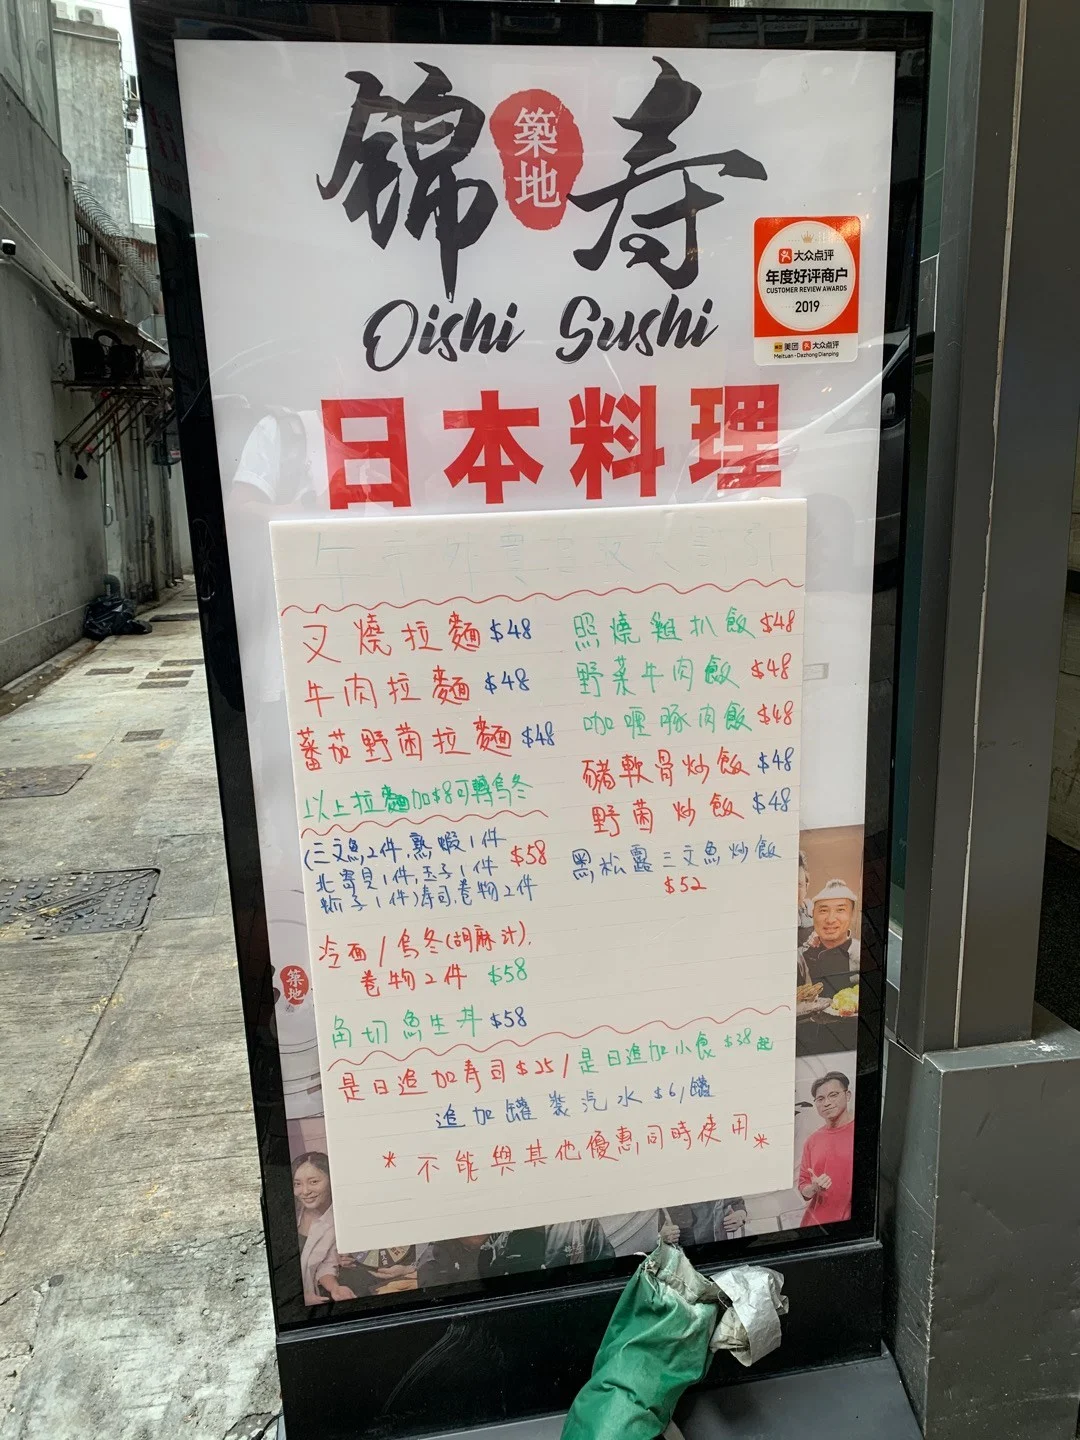 錦 築地 寿
Oishi Sushi
大众点评
年度好评商户
CUSTOMER REVIEW AWARDS
2019
美团 大众点评
Meituan-DazhongDianping
日本料理
午市外賣自取大部引
叉燒拉麵 $48
牛肉拉麵 $48
蕃茄野菌拉麵 $48
以上拉麵加$8可轉烏冬
(三文魚2件,熟蝦1件
北寄貝1件,玉子1件 $58
魚子1件)寿司,卷物2件
冷面/烏冬(胡麻汁),
卷物2件 $58
角切魚生丼 $58
照燒雞扒飯 $48
野菜牛肉飯 $48
咖喱豚肉飯 $48
豬軟骨炒飯 $48
野菌炒飯 $48
黑松露三文魚炒飯
$52
是日追加寿司 $25/是日追加小食 $38起
追加罐裝汽水 $6/罐
*不能與其他優惠同時使用*
築地